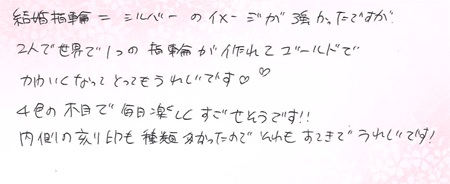 結婚指輪 = シルバー のイメージが 強かったですが
2人で世界で1つの 指輪が作れて ゴールドで
かわいくなって とってもうれしいです♡♡
4色の木目で毎日楽しくすごせそうです!!
内側の刻印も種類多かったので それも すてきで うれしいです!